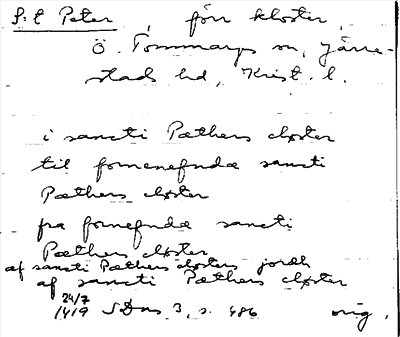 S:t Peter, förr kloster,
Ö. Tommarps sn, Järre-
stads hd, Krist. l.
i sancti Pæthers closter
til fornenefndæ sancti
Pæthers closter
fra fornefndæ sancti
Pæthers closter
af sancti Pæthers closters jordh
af sancti Pæthers closter
24/7
1419 SDns 3, s. 486 orig.